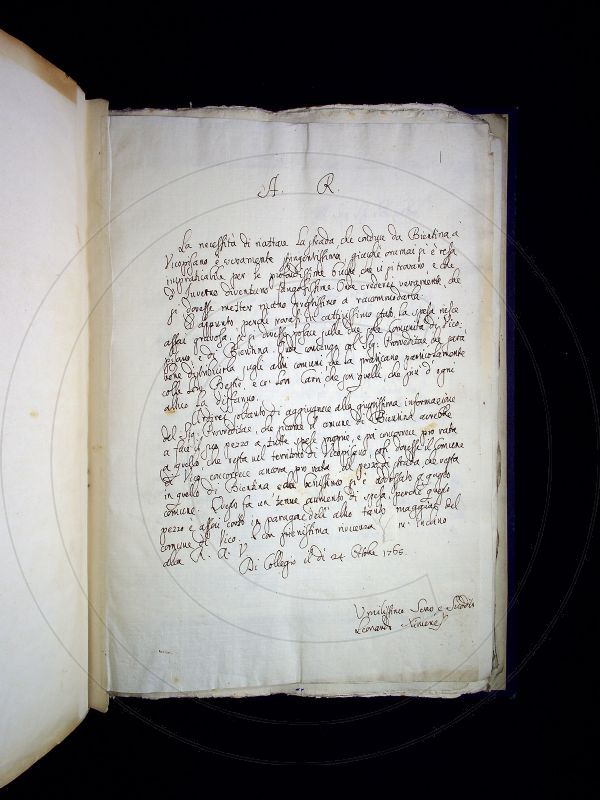 A. R.
La necessità di riattare la strada che conduce da Bientina a
Vicopisano è veramente stringentissima, giacchè oramai si è resa
impraticabile per le profondissime buche che vi si trovano, e che
d'Inverno diventano fangosissime. Onde crederei veramente, che
si dovesse metter mano prestissimo a raccomodarla.
E appunto perchè trovasi in cattivissimo stato, la spesa riesce
assai gravosa, se si dovesse posare sulle due sole Comunità di Vico-
pisano, e di Bientina. Onde convengo col Sig. Provveditore che sarà
bene distribuirla sugli altri comuni che la praticano particolarmente
colle loro Bestie, e co' loro Carri che son quelli, che più d'ogni
altro la disfanno.
soltanto di aggiugnere alla giustissima informazione
del Sig. Provveditore, che siccome il comune di Bientina avrebbe
a fare il suo pezzo a tutte spese proprie, e poi concorrere pro rata
a quello che resta nel territorio di Vicopisano, così dovesse il Comune
di Vico concorrere ancora pro rata al pezzo di strada che resta
in quello di Bientina e addossato a questo
comune. Questo fa un tenue aumento di spesa, perchè questo
pezzo è assai corto in paragone dell' altro tanto maggiore del
comune di Vico. E con pienissima m' inchino
alla R. A. V.
Di Collegio il dì 24 Ottobre 1765
Umilissimo Servo e
Leonardo Ximenes